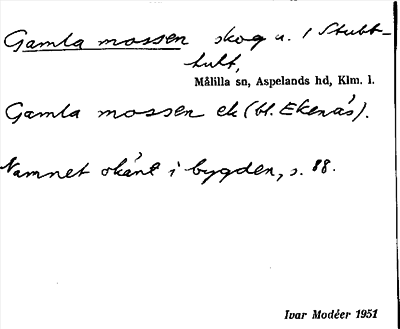 Gamla mossen skog u. / Stubb-
hult,
Målilla sn, Aspelands hd, Klm. l.
Gamla mossen ek (bl. Ekenäs).
Namnet okänt i bygden, s. 88.
Ivar Modéer 1951